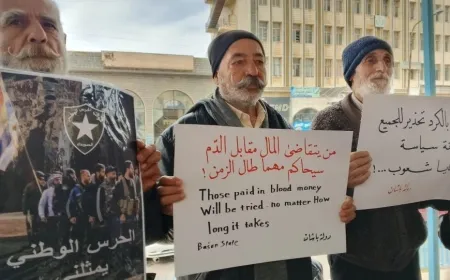 الحرس الوطني
يمثلني
من يتقاضى المال مقابل الدّم
سيحاكم مهما طال الزمن!
Those paid in blood money
Will be tried. no matter How
long it takes
Baian State
دولة باشان
بالكرد تحذير للجميع
سياسة
شعوب...!